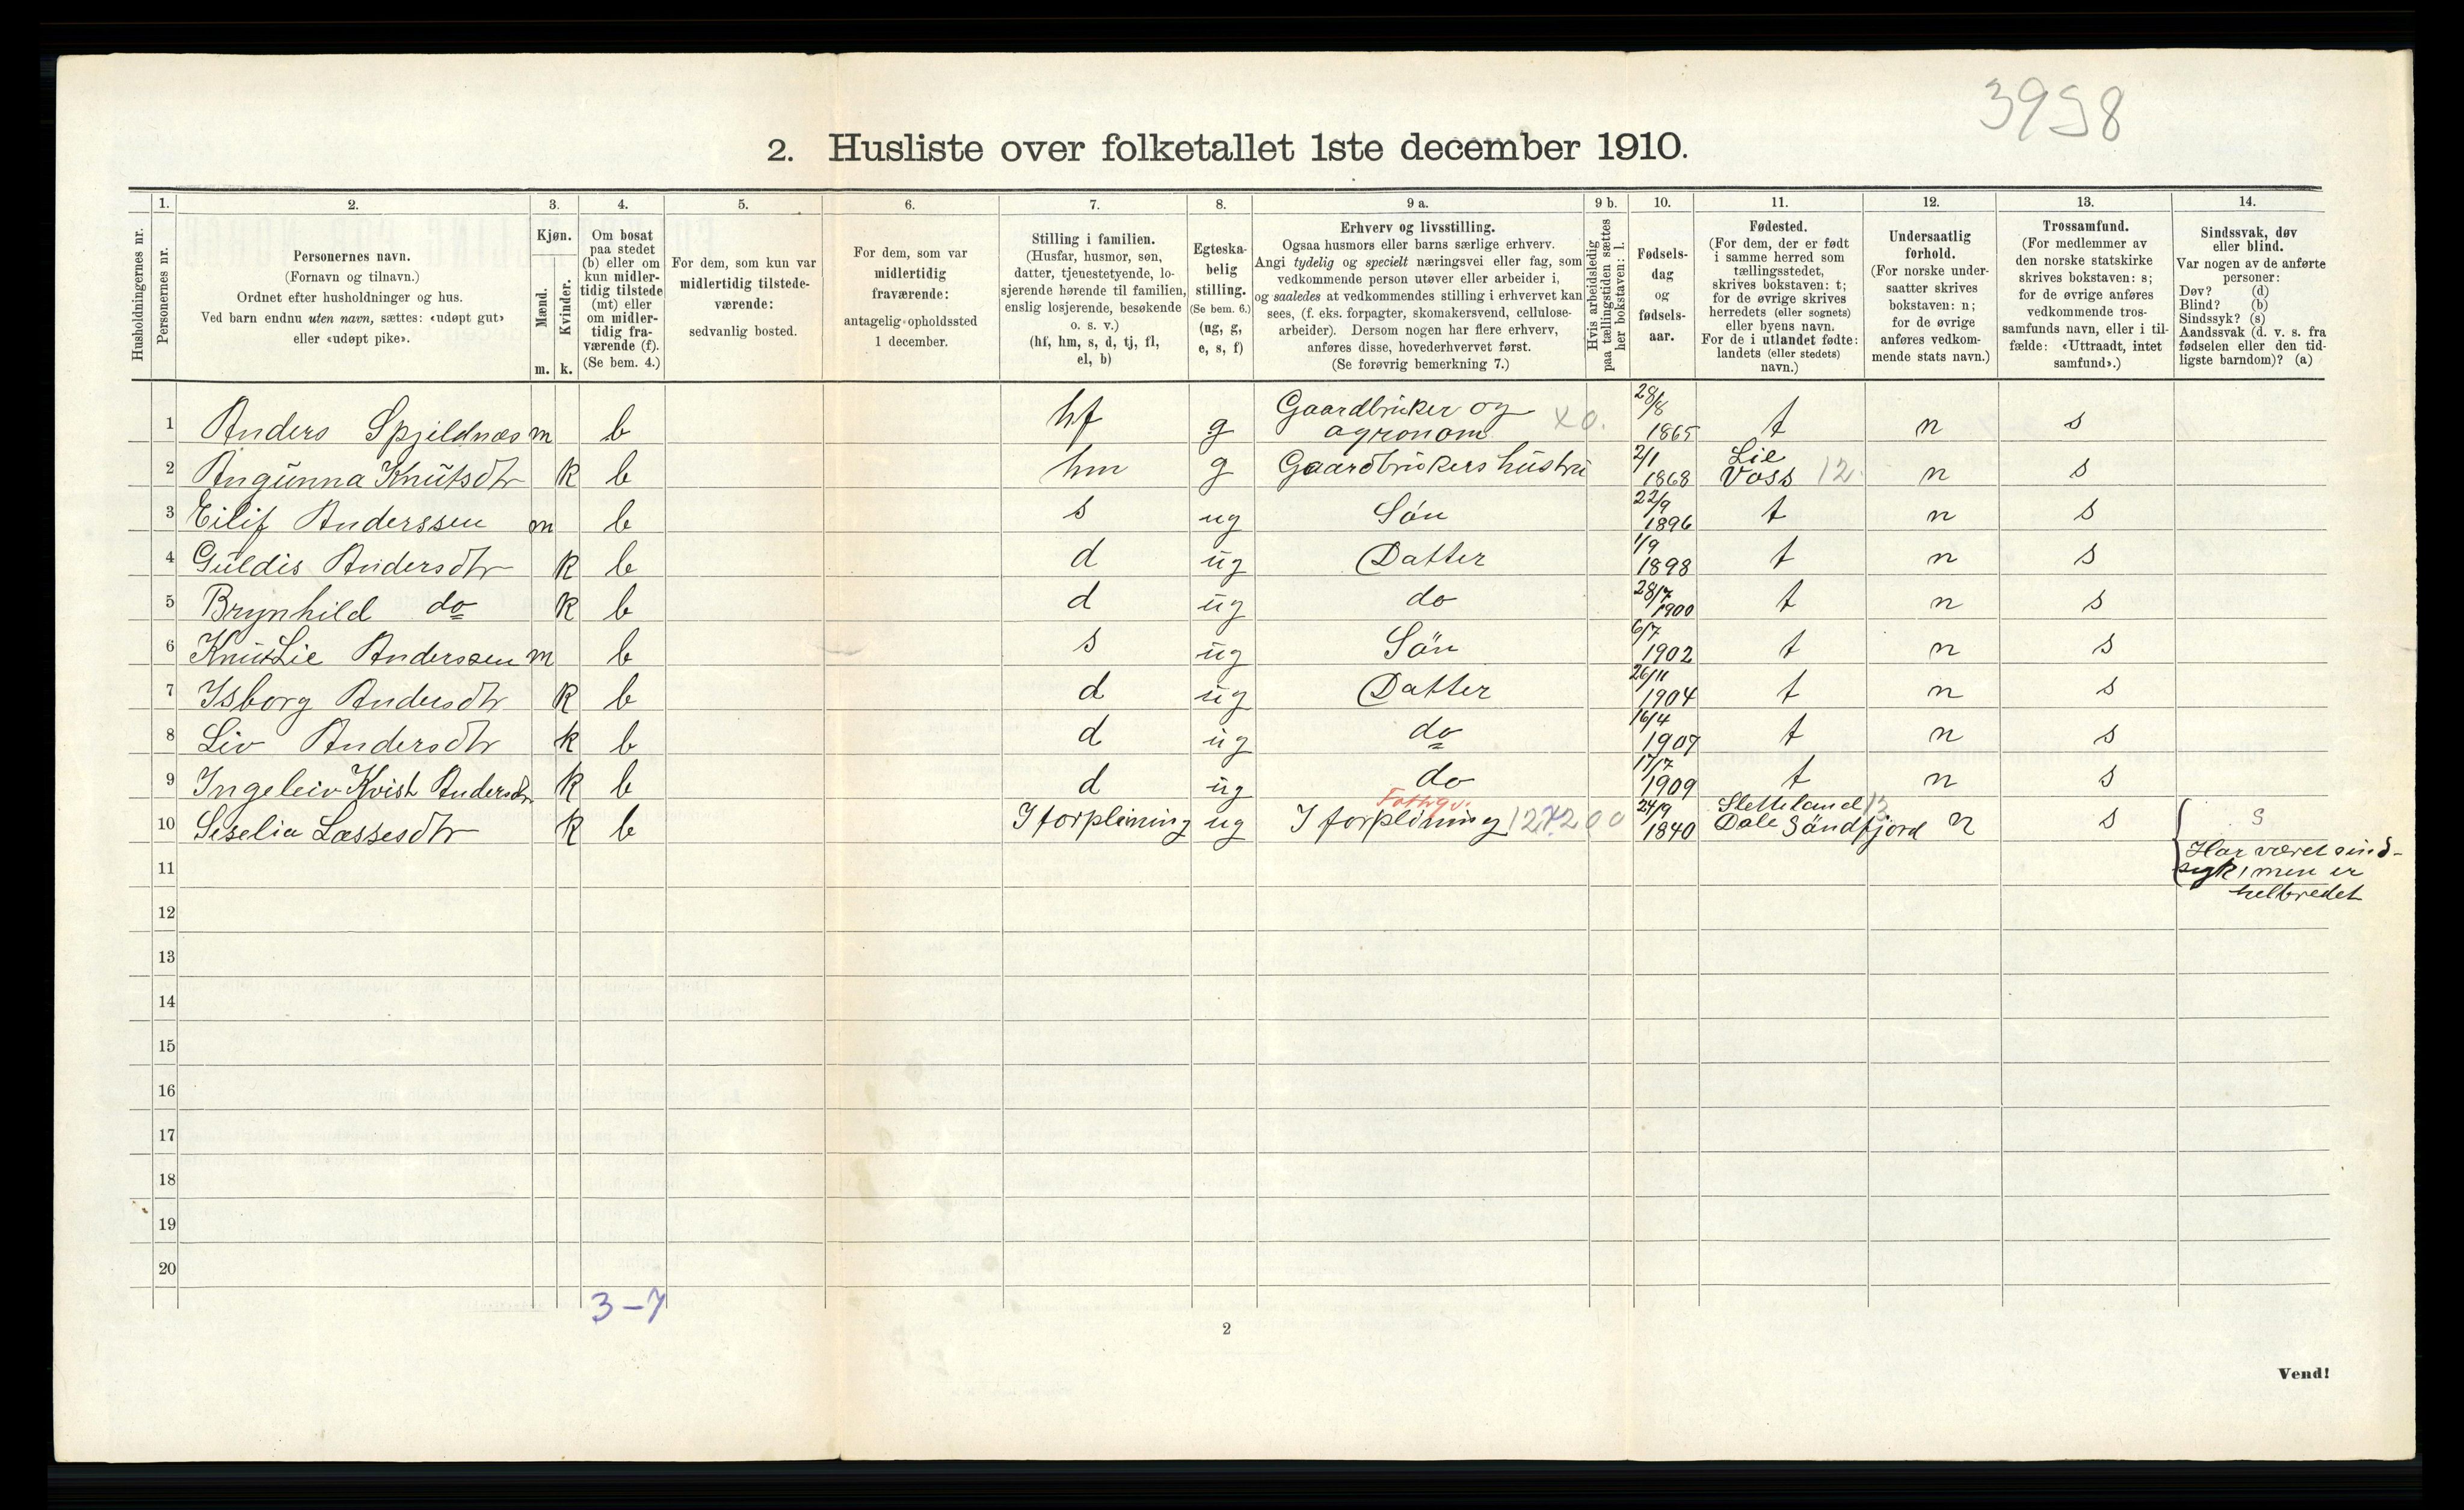 3998
2. Husliste over folketallet 1ste december 1910.
Husholdningernes nr.
1.
Personernes nr.
2.
Personernes navn.
(Fornavn og tilnavn.)
Ordnet efter husholdninger og hus.
Ved barn endnu uten navn, sættes: «udøpt gut»
eller «udøpt pike».
3.
Kjøn.
Mænd.
Kvinder.
m. k.
4.
Om bosat
paa stedet
(b) eller om
kun midler-
tidig tilstede
(mt) eller
om midler-
tidig fra-
værende (f).
(Se bem. 4.)
5.
For dem, som kun var
midlertidig tilstede-
værende:
sedvanlig bosted.
6.
For dem, som var
midlertidig
fraværende:
antagelig opholdssted
1 december.
7.
Stilling i familien.
(Husfar, husmor, søn,
datter, tjenestetyende, lo-
sjerende hørende til familien,
enslig losjerende, besøkende
o. s. v.)
(hf, hm, s, d, tj, fl,
el, b)
8.
Egteska-
belig
stilling.
(Se bem. 6.)
(ug, g,
e, s, f)
9 a.
Erhverv og livsstilling.
Ogsaa husmors eller barns særlige erhverv.
Angi tydelig og specielt næringsvei eller fag, som
vedkommende person utøver eller arbeider i,
og saaledes at vedkommendes stilling i erhvervet kan
sees, (f. eks. forpagter, skomakersvend, cellulose-
arbeider). Dersom nogen har flere erhverv,
anføres disse, hovederhvervet først.
(Se forøvrig bemerkning 7.)
9 b.
Hvis arbeidsledig
paa tællingstiden sættes
her bokstaven: l.
10.
Fødsels-
dag
og
fødsels-
aar.
11.
Fødested.
(For dem, der er født
i samme herred som
tællingsstedet,
skrives bokstaven: t;
for de øvrige skrives
herredets (eller sognets)
eller byens navn.
For de i utlandet fødte:
landets (eller stedets)
navn.)
12.
Undersaatlig
forhold.
(For norske under-
saatter skrives
bokstaven: n;
for de øvrige
anføres vedkom-
mende stats navn.)
13.
Trossamfund.
(For medlemmer av
den norske statskirke
skrives bokstaven: s;
for de øvrige anføres
vedkommende tros-
samfunds navn, eller i til-
fælde: «Uttraadt, intet
samfund».)
14.
Sindssvak, døv
eller blind.
Var nogen av de anførte
personer:
Døv? (d)
Blind? (b)
Sindssyk? (s)
Aandssvak (d. v. s. fra
fødselen eller den tid-
ligste barndom)? (a)
1 Anders Spjeldnæs m b hf g Gaardbruker og agronom x 0. 28/8 1865 t n s
2 Angunna Knutsdtr k b hm g Gaardbrukers hustru 2/1 1868 Lie Voss 12 n s
3 Eilif Anderssen m b s ug Søn 22/9 1896 t n s
4 Guldis Andersdtr k b d ug Datter 1/9 1898 t n s
5 Brynhild do k b d ug do 28/7 1900 t n s
6 Knut Lie Anderssen m b s ug Søn 6/7 1902 t n s
7 Isborg Andersdtr k b d ug Datter 26/11 1904 t n s
8 Liv Andersdtr k b d ug do 16/4 1907 t n s
9 Ingeleiv Kvist Andersdtr k b d ug do 17/7 1909 t n s
Fattigv.
10 Seselia Lassesdtr k b I forpleining ug I forpleining 24/9 1840 Sletteland Dale Söndfjord 13 n s S
11 Har været sind-
syk, men er
helbredet
12
13
14
15
16
17
18
19
20
3-7
2
Vend!